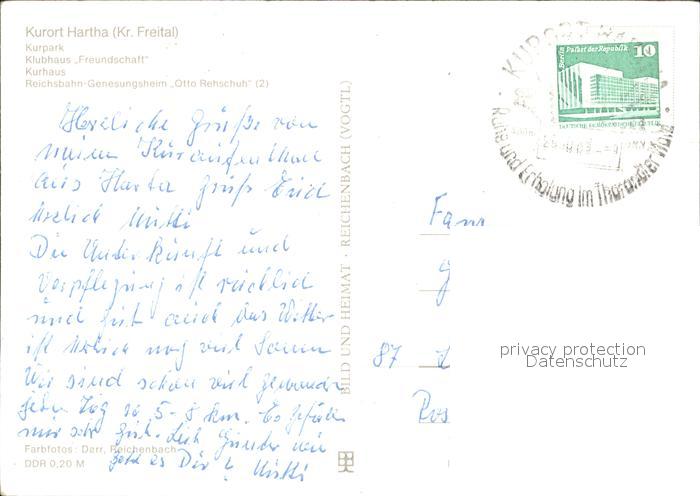 Kurort Hartha (Kr. Freital)
Kurpark
Klubhaus „Freundschaft"
Kurhaus
Reichsbahn-Genesungsheim „Otto Rehschuh" (2)
Herzliche Grüße von
meinem Kuraufenthalt
aus Hartha grüß Euch
herzlich Mutti
Die Unterkünft und
Verpflegung ist reichlich
und gut auch das Wetter
ist herzlich noch viel Sonne
Wir sind schon viel gewandert
jeden Tag so 5-8 km. Es gefällt
mir sehr gut. Lieb Günter wie
geht es Dir? Mutti
Farbfotos: Derr, Reichenbach
DDR 0,20 M
BILD UND HEIMAT · REICHENBACH (VOGTL)
Berlin Palast der Republik
10
DEUTSCHE DEMOKRATISCHE REPUBLIK
KURORT HARTHA
Ruhe und Erholung im Tharandter Wald
Fam
87
Ros
privacy protection
Datenschutz